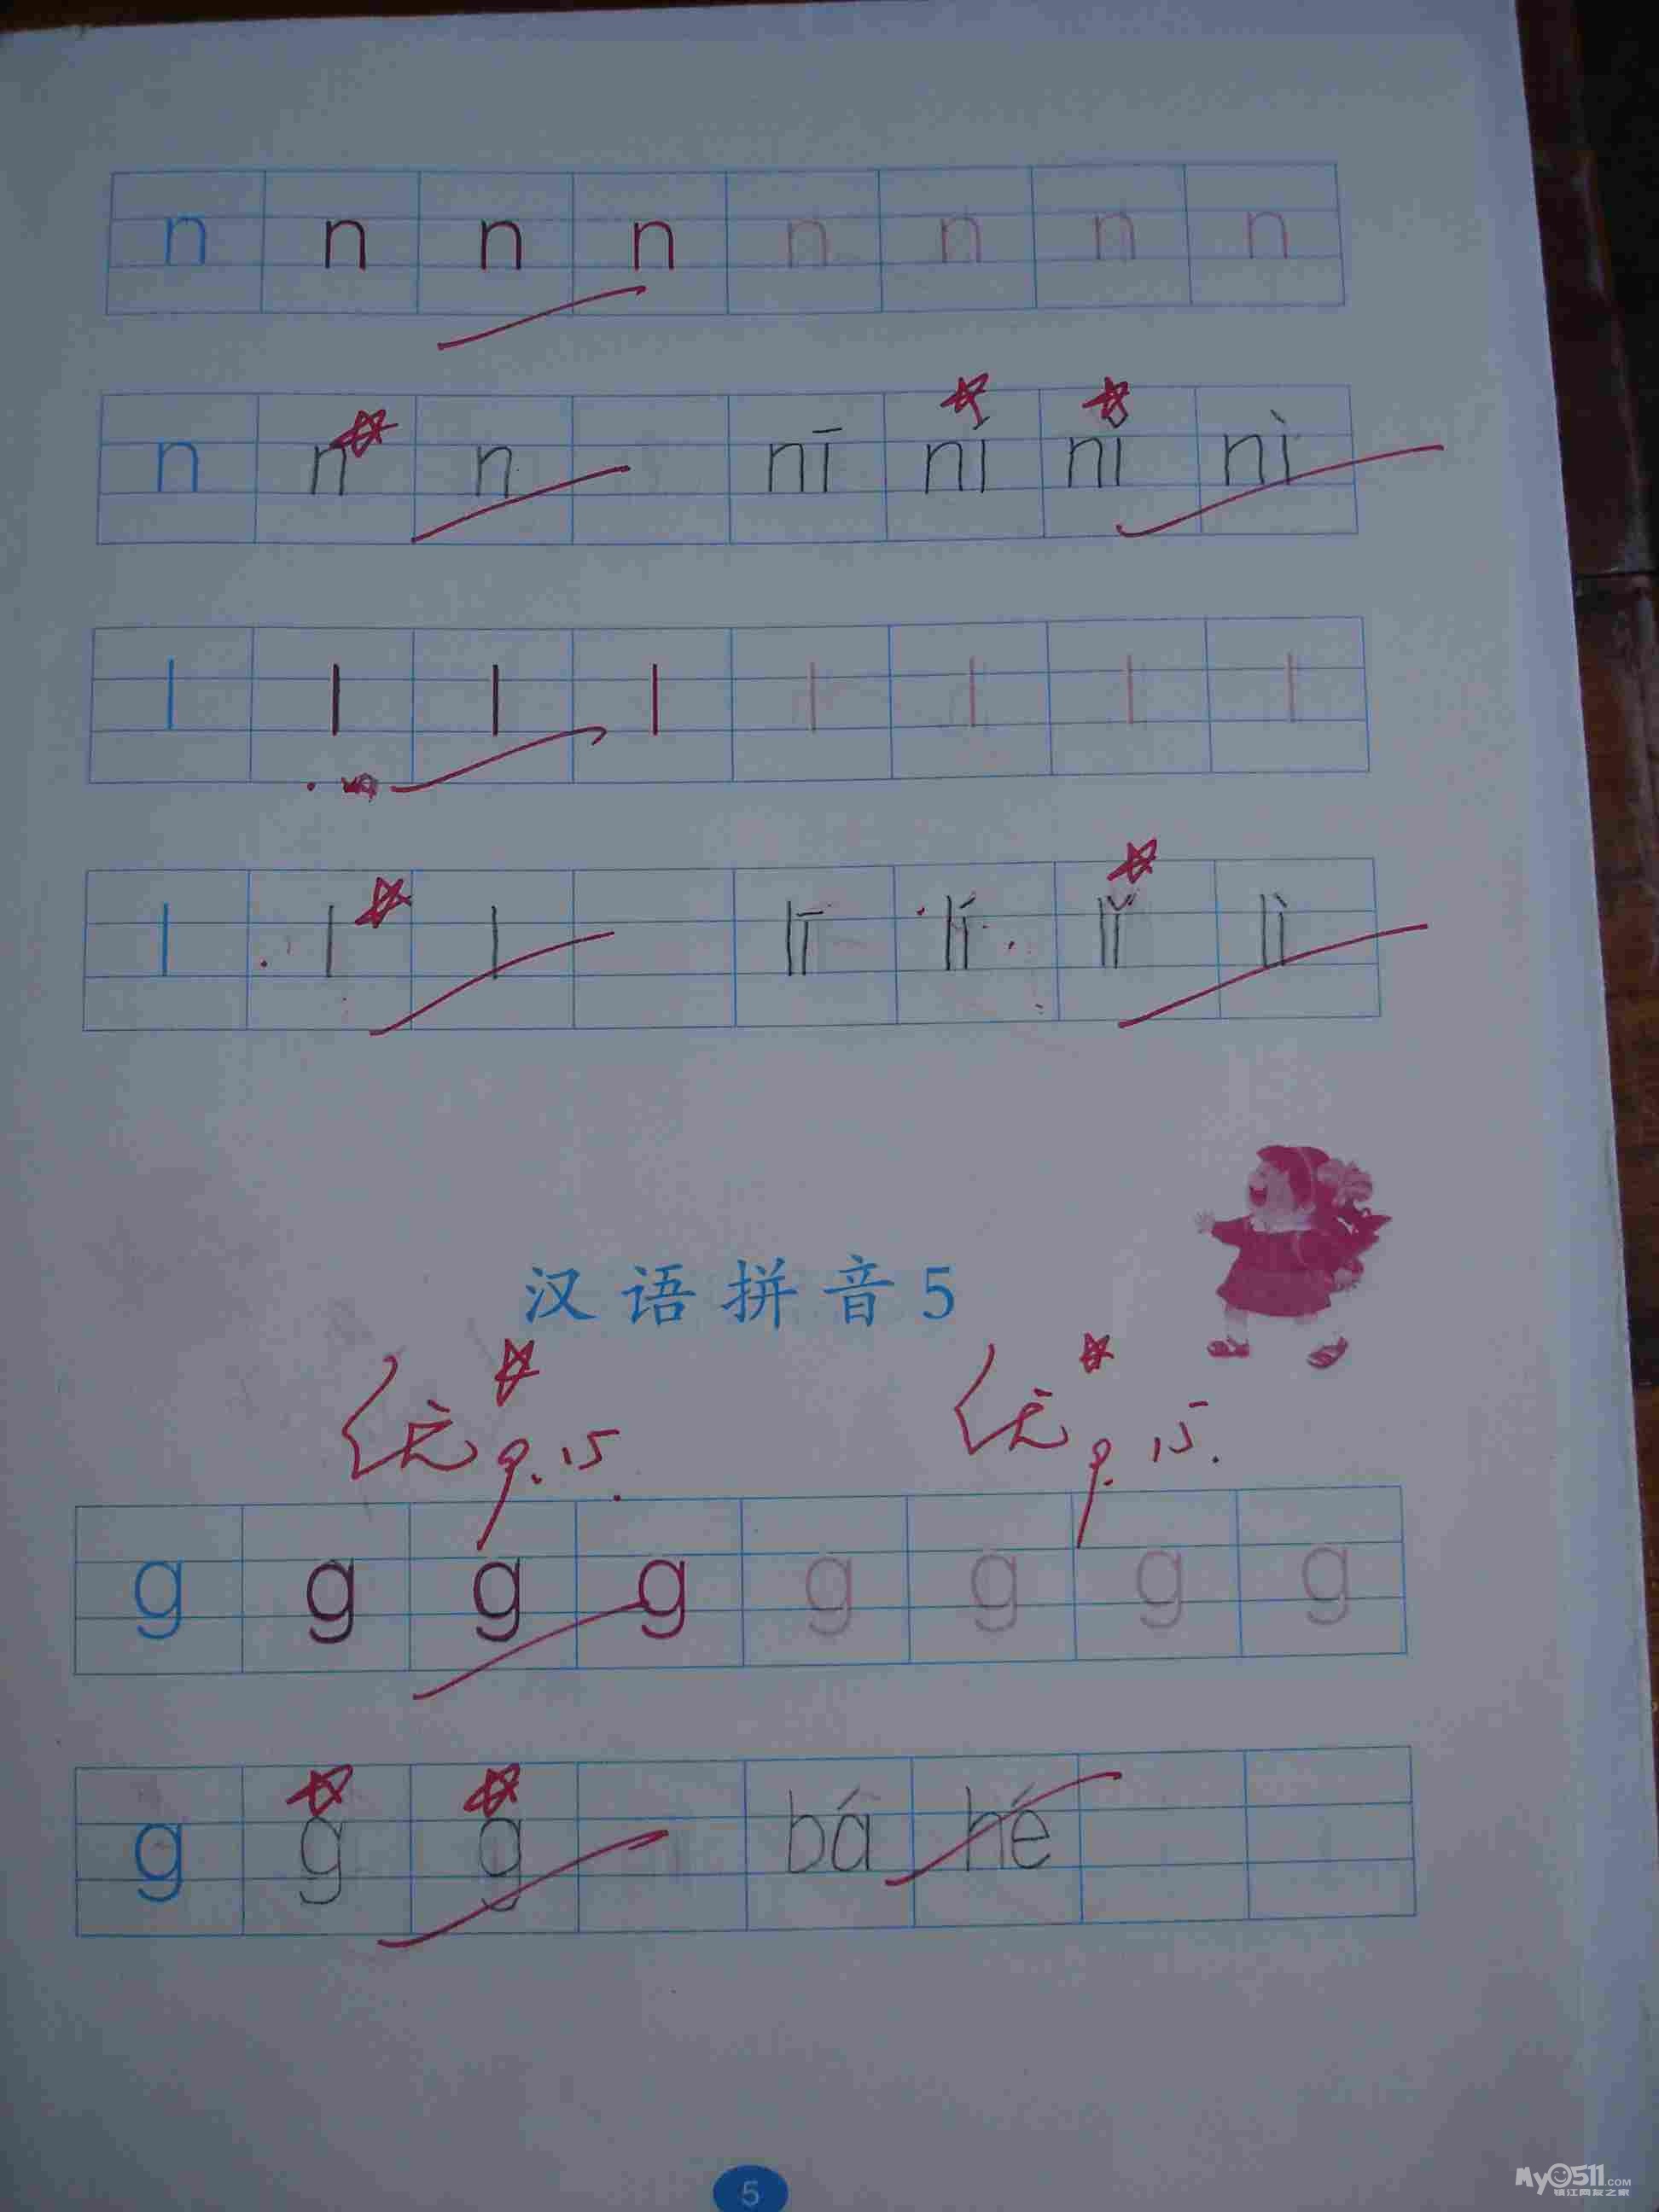 n n n n n n n n
n n n nī ní nǐ nì
l l l l l l l l
l l l lī lí lǐ lì
汉语拼音5
优 9.15. 优 9.15.
g g g g g g g g
g g g bá hé
5
My0511.COM
镇江网友之家